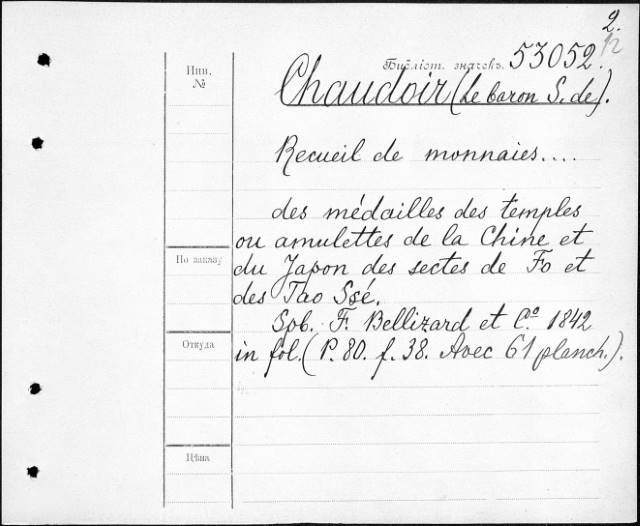 2.
12
Библіот. значекъ. 53052.
Инв.
№
Chaudoir (le baron S. de).
Recueil de monnaies....
des médailles des temples
ou amulettes de la Chine et
По заказу
du Japon des sectes de Fo et
des Tao Ssé.
Spb. F. Bellizard et Cº 1842
Откуда
in fol. (P. 80. f. 38. Avec 61 planch.).
Цѣна